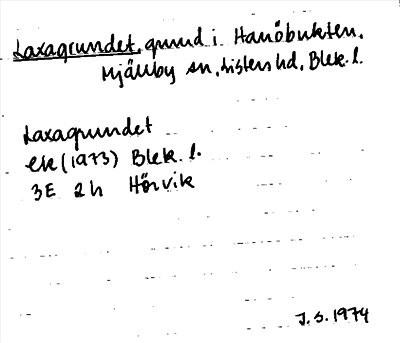 Laxagrundet, grund i Hanöbukten.
Mjällby sn, Listers hd, Blek. l.
Laxagrundet
Ek (1973) Blek. l.
3E 2h Hörvik
J. S. 1974